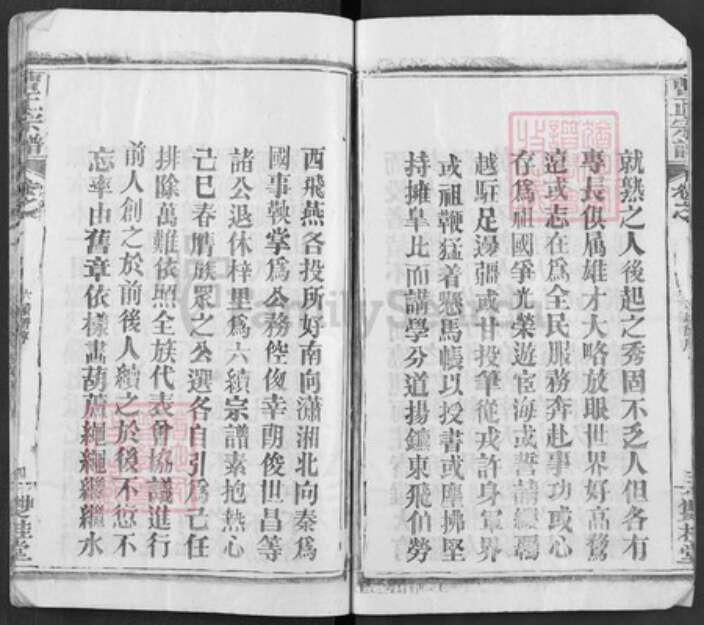 就熟之人後起之秀固不乏人但各有
專長俱屬雄才大略放眼世界好高騖
遠或志在爲全民服務奔赴事功或心
存爲祖國爭光榮遊宦海或誓請纓羈
越駐足邊疆或甘投筆從戎許身軍界
或祖鞭猛着懸馬帳以授書或塵拂堅
持擁皐比而講學分道揚鑣東飛伯勞
西飛燕各投所好南向瀟湘北向秦爲
國事鞅掌爲公務倥傯幸朗俊世昌等
諸公退休梓里爲六續宗譜素抱熱心
己巳春膺族眾之公選各自引爲己任
排除萬難依照全族代表會協議進行
前人創之於前後人續之於後不愆不
忘率由舊章依樣畫葫蘆繩繩繼繼永
曹氏宗譜
卷之
雙桂堂
FamilySearch